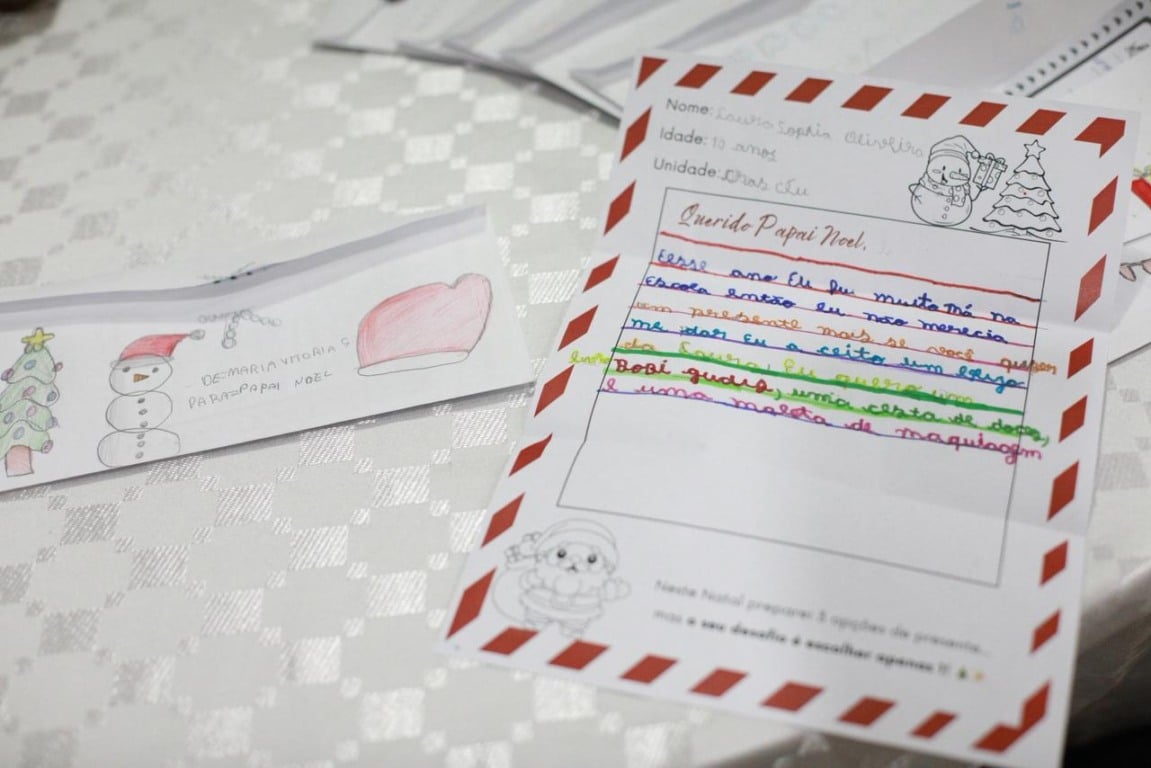 DE-MARIA VITORIA S
PARA=PAPAI NOEL
Nome: Laura Sophia Oliveira
Idade: 10 anos
Unidade: Cras Céu
Querido Papai Noel,
Eesse ano Eu fui muito má na
Escola então eu não merecia
um presente mais se você quiser
me dar Eu a ceito um
da Laura, Eu quero um
BoBi gudis, uma cesta de doces,
e uma maleta de maquiagem
Neste Natal preparei 3 opções de presente...
mas o seu desafio é escolher apenas 1!